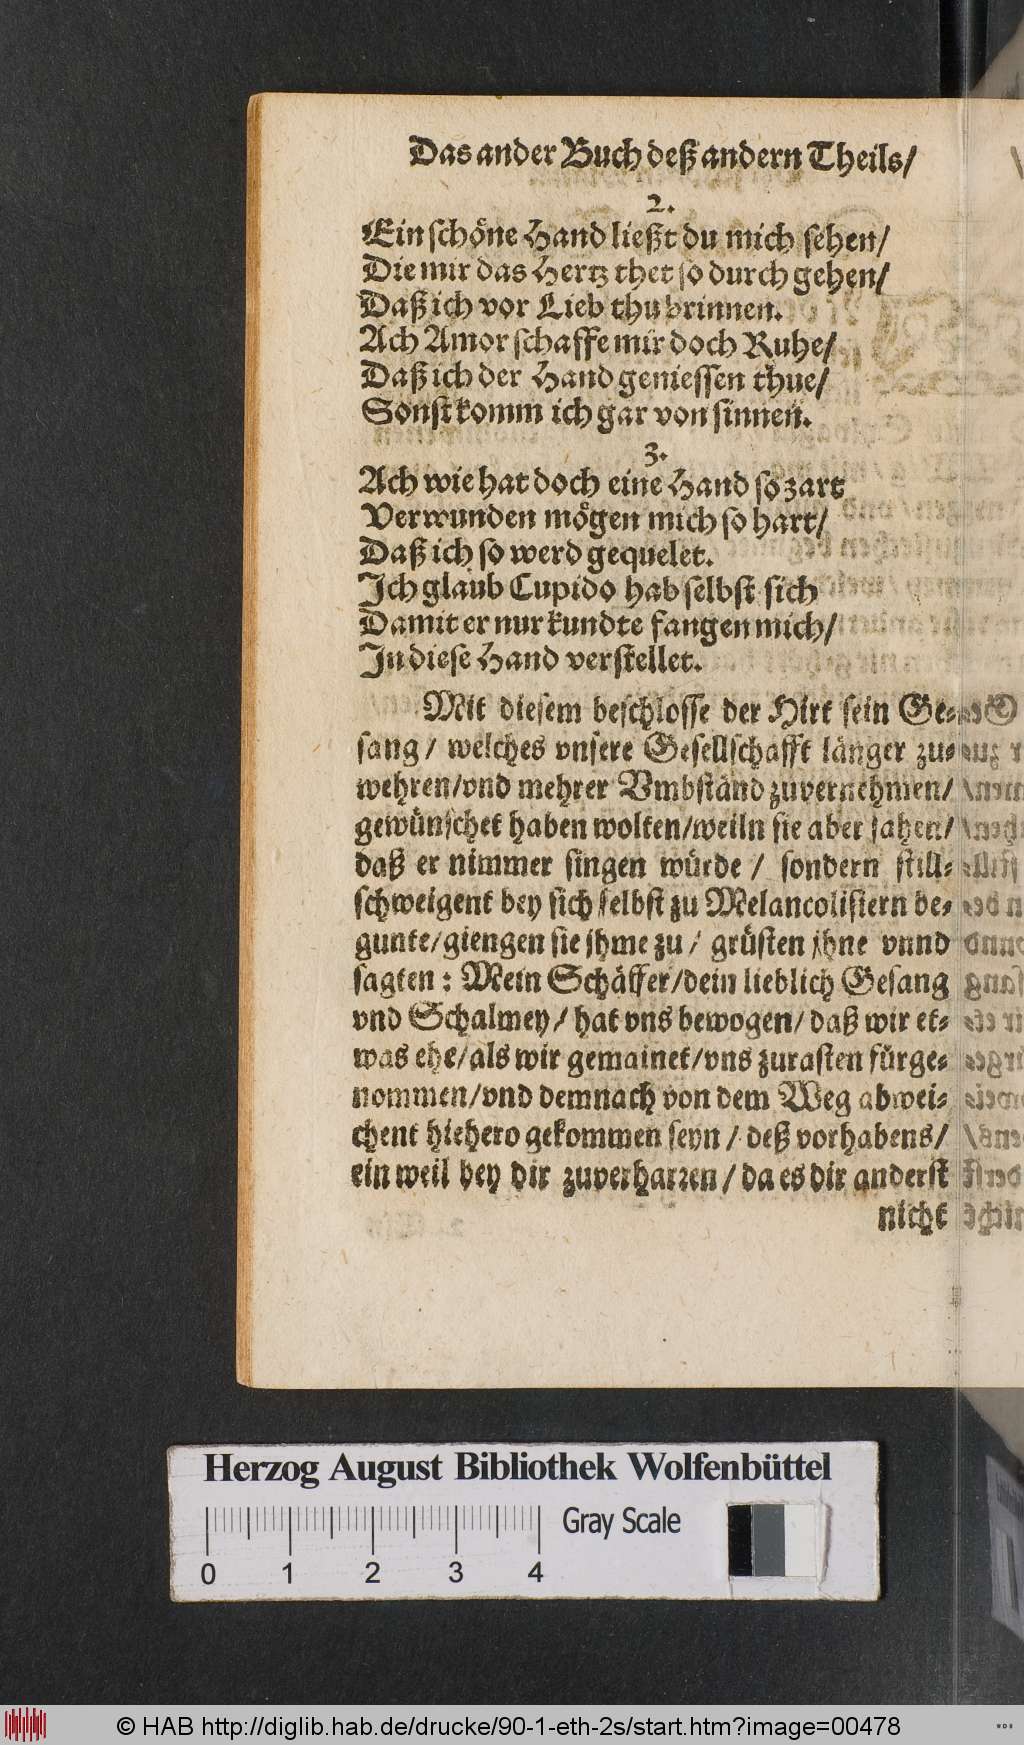 Das ander Buch deß andern Theils/
2.
Ein schöne Hand ließt du mich sehen/
Die mir das Hertz thet so durch gehen/
Daß ich vor Lieb thu brinnen.
Ach Amor schaffe mir doch Ruhe/
Daß ich der Hand geniessen thue/
Sonst komm ich gar von sinnen.
3.
Ach wie hat doch eine Hand so zart
Verwunden mögen mich so hart/
Daß ich so werd gequelet.
Ich glaub Cupido hab selbst sich
Damit er nur kundte fangen mich/
In diese Hand verstellet.
Mit diesem beschlosse der Hirt sein Ge-
sang / welches vnsere Gesellschafft länger zu-
wehren/vnd mehrer Vmbständ zuvernehmen/
gewünschet haben wolten/weiln sie aber sahen/
daß er nimmer singen würde / sondern still-
schweigent bey sich selbst zu Melancolisiern be-
gunte/giengen sie jhme zu / grüsten jhne vnnd
sagten: Mein Schäffer/dein lieblich Gesang
vnd Schalmey/ hat vns bewogen/ daß wir et-
was ehe/als wir gemainet/vns zurasten fürge-
nommen/vnd demnach von dem Weg abwei-
chent hiehero gekommen seyn / deß vorhabens/
ein weil bey dir zuverharren / da es dir anderst
nicht
Herzog August Bibliothek Wolfenbüttel
Gray Scale
0 1 2 3 4
© HAB http://diglib.hab.de/drucke/90-1-eth-2s/start.htm?image=00478